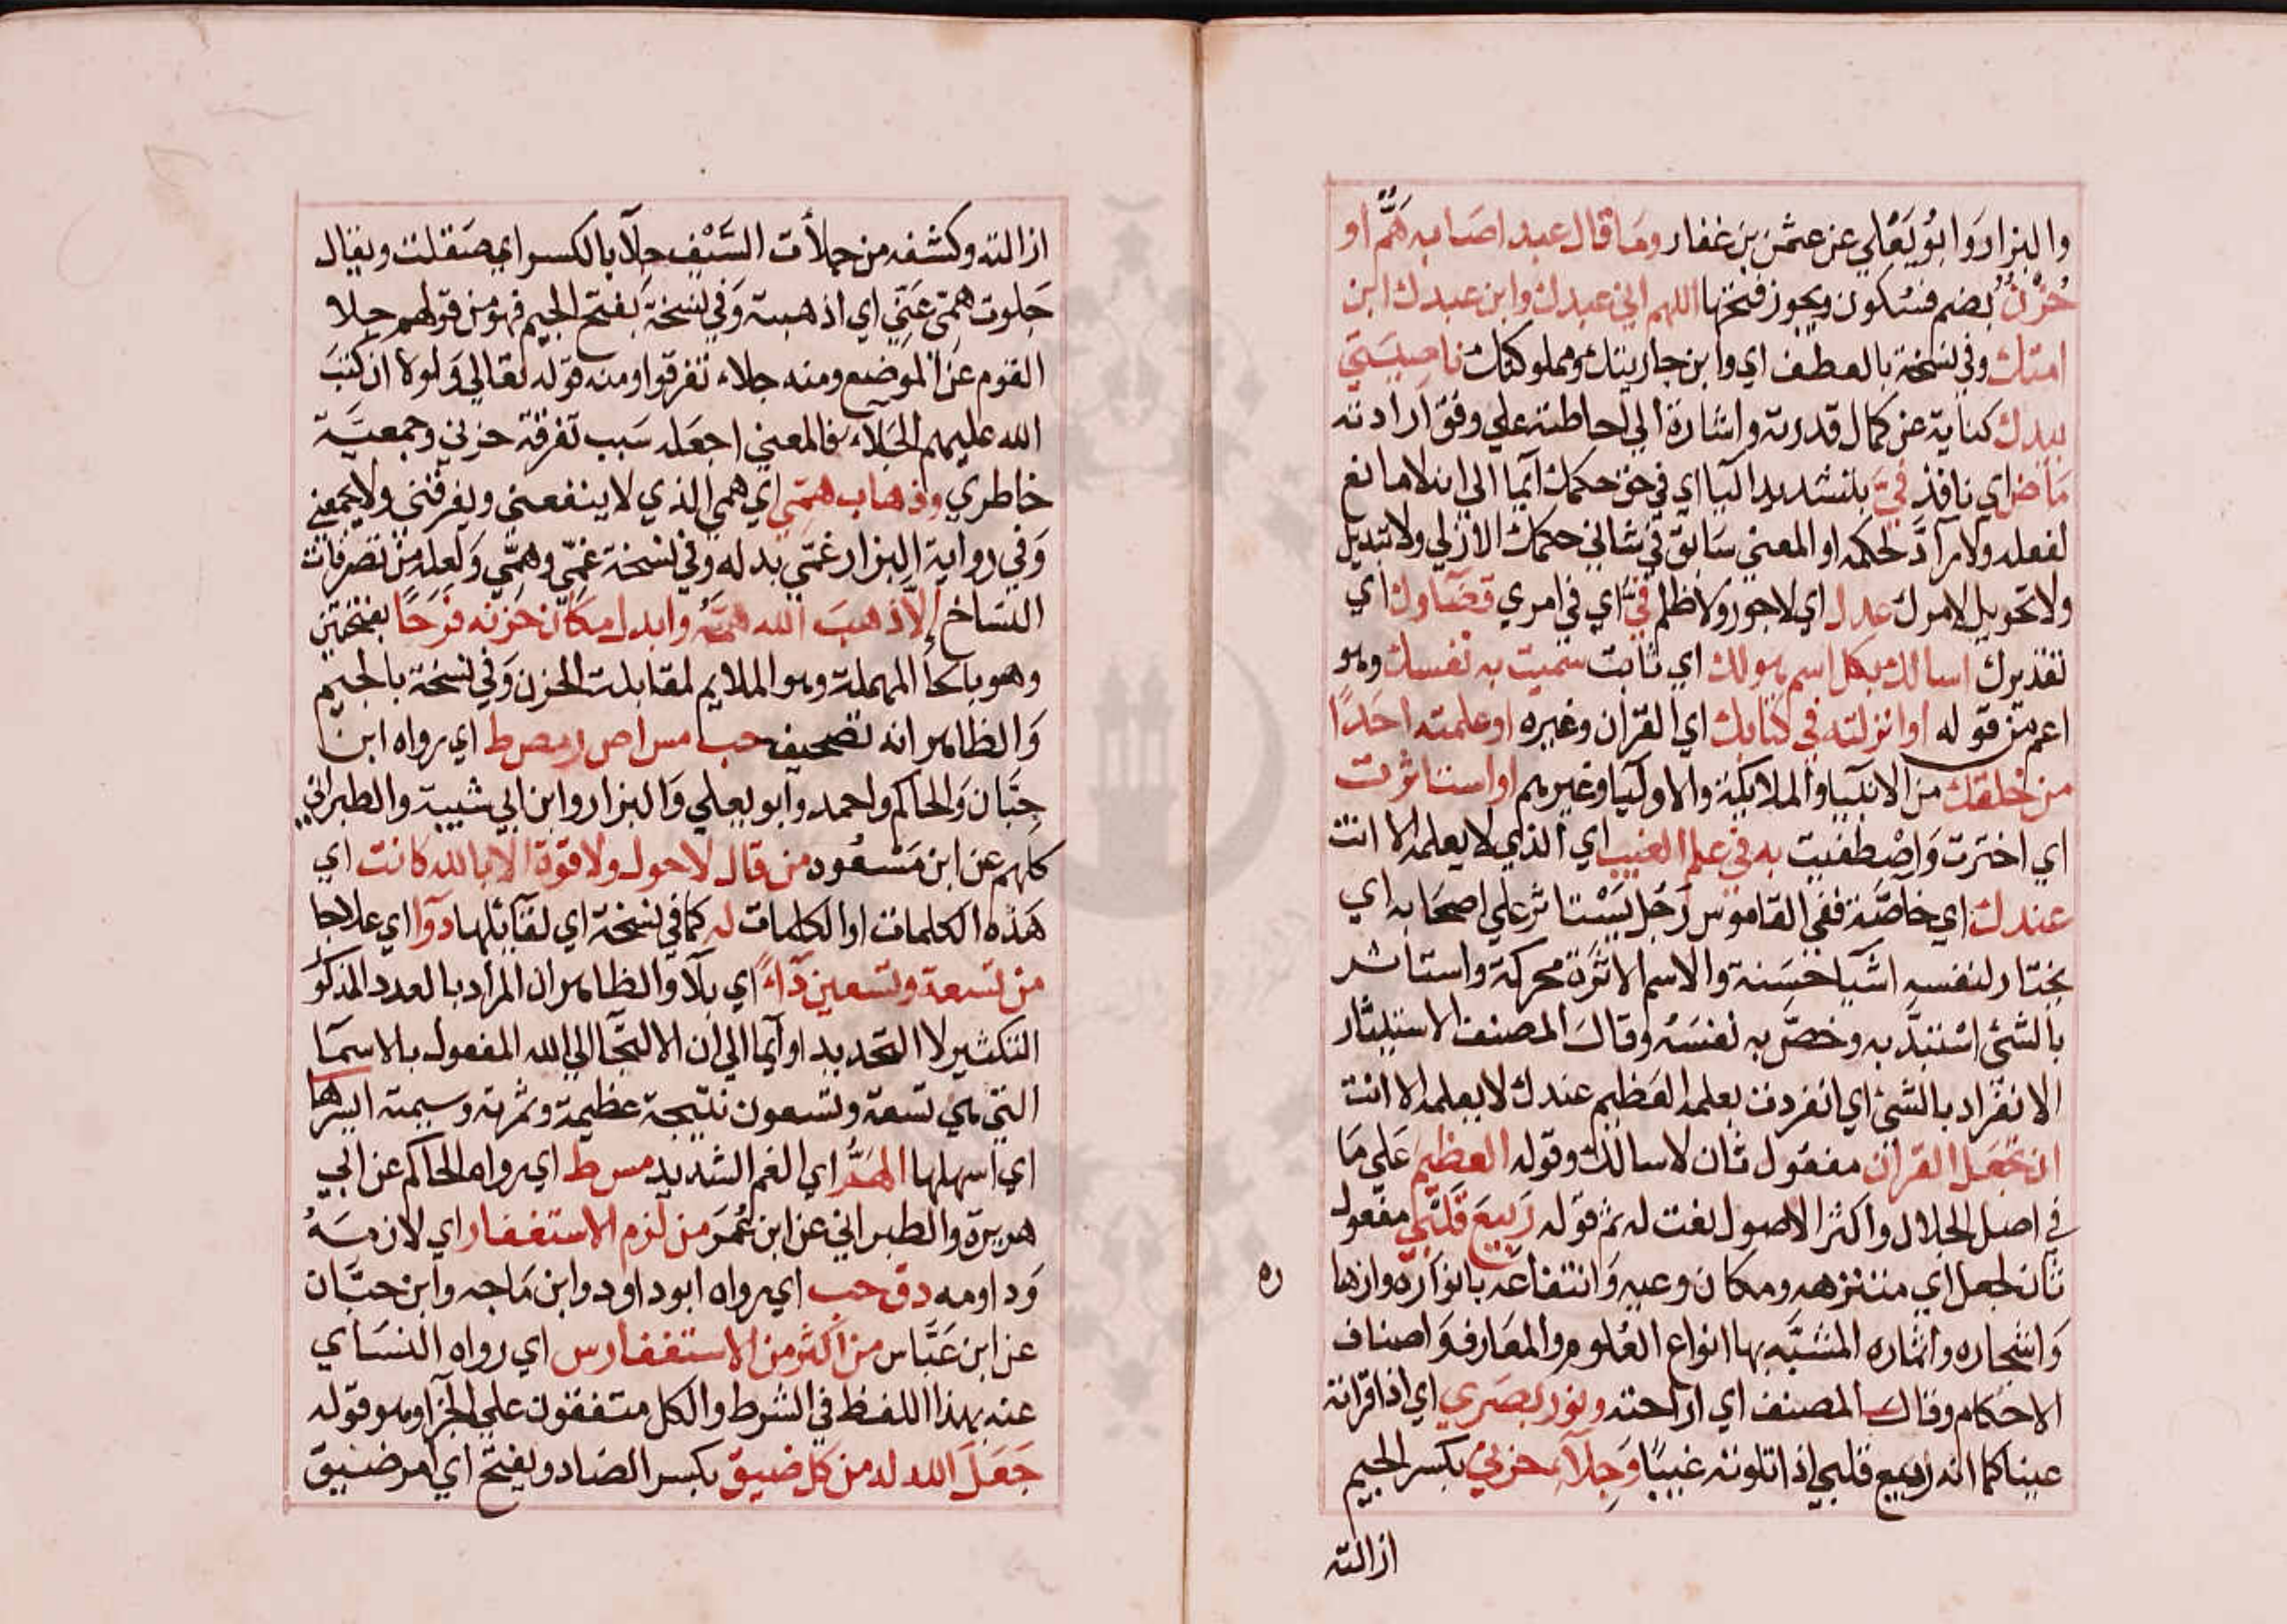 والبزار وَابُو يَعْلي عن عثمن بن غفار ومَا قال عبد اصَابه هَمٌّ او
حُزْنٌ بضم فسُكون ويجوز فتحها اللهم اني عبدك وابن عبدك ابن
امتك وفي نسخة بالعطف اي وابن جاريتك ومملوكتك ناصِيَتي
بيدك كناية عن كمال قدرته واشارة الي احاطته علي وفق ارادته
مَاض اي نافذ فيَّ بتشديد اليا اي في حق حكمك ايما الي انه لا مانع
لفعله ولا رآدَّ لحكمه او المعني سَابق في شاني حكمك الازلي ولا تبديل
ولا تحويل لامرك عدل اي لا جور ولا ظلم فيَّ اي في امري قضاوك اي
تقديرك اسالك بكل اسم هو لك اي ثابت سميت به نفسك وهو
اعم من قوله او انزلته في كتابك اي القران وغيره او علمته احَدًا
من خلقك من الانبيا والملايكة والاوليا وغيرهم او استاثرت
اي اخترت وَاصْطفيت به في علم الغيب اي الذي لا يعلمه الا انت
عندك اي خاصَّة ففي القاموس رَجُل يَسْتاثر علي اصحَابه اي
يختار لنفسه اشيا حَسَنة والاسم الاثرَة محركة واستاثر
بالشئ اسْتبدَّ به وخصَّ به نفسَهُ وقالَ المصنف الاستيثار
الانفراد بالشئ اي انفردت بعلمه العَظيم عندك لا يعلمه الا انت
ان تجعَل القران مفعُول ثان لاسالك وقوله العظيم عَلي مَا
في اصل الجلال واكثر الاصول نعت له ثم قوله رَبيعَ قَلبي مفعول
ثان لجعل اي متنزهه ومكان رعيه وَانتفاعه بانوَاره وازها
ره
وَاشجاره واثماره المشبَّه بها انواع العُلوم والمعَارف وَاصناف
الاحكام وقالَ المصنف اي اراحته ونور بصَري اي اذا قراته
عينا كما انه ربيع قلبي اذا تلوته غيبًا وَجِلَآء حزني بكسر الجيم
ازالته
ازالته وكشفه من جلأت السَّيْف جِلآ بالكسر اي صَقلت ويقال
جَلوت همّي عَنّي اي اذهبته وَفي نسخة بفتح الجيم فهو من قولهم جلا
القوم عن الموضع ومنه جلاء تفرقوا ومنه قوله تعالي وَلولا ان كتبَ
الله عليهم الجَلاَء فالمعني اجعَله سَبب تفرقة حزني وجمعيَّة
خاطري وذهاب همّي اي همي الذي لا ينفعني ويفرقني ولا يجمعني
وَفي رواية البزار غمّي بدله وَفي نسخة غمّي وهمّي وَلعله من تصرفات
النسَاخ إلاّ اذهبَ الله همَّه وابدل مكَانَ حَزنه فَرَحًا بفتحتين
وهو بالحآ المهملة وهو الملايم لمقابلة الحزن وَفي نسخة بالجيم
وَالظاهر انه تصحيف حب مس اص ر مص ط اي رواه ابن
حِبَّان وَالحاكم واحمد وَابو يعلي وَالبزار وابن ابي شيبة والطبراني
كلهم عن ابن مَسْعُود من قال لا حول ولا قوة الا بالله كانت اي
هَذه الكلمات او الكلمات له كما في نسخة اي لقآئلها دوآا اي علاجا
من تسعة وتسعين دآءً اي بلآ والظاهر ان المرَاد بالعدد المذكو
التكثير لا التحديد او ايما الي ان الالتجآ الي الله المفعول بالاسمآ
التي هي تسعة وتسعون نتيجة عظيمة وثمرته وسيمة ايسرها
اي اسهلها الهَمُّ اي الغم الشديد مس ط اي رواه الحاكم عن ابي
هريرة والطبراني عن ابن عُمَرَ من لزم الاستغفار اي لازمَهُ
وَداومه د ق حب اي رواه ابو داود وابن مَاجه وَابن حبَّان
عن ابن عَبَّاس من اكثر من الاستغفار س اي رواه النسَاي
عنه بهذا اللفظ في الشرط والكل متفقون علي الجزآ وهو قوله
جَعَلَ الله له من كل ضيق بكسر الضاد ويفتح اي امر ضيق